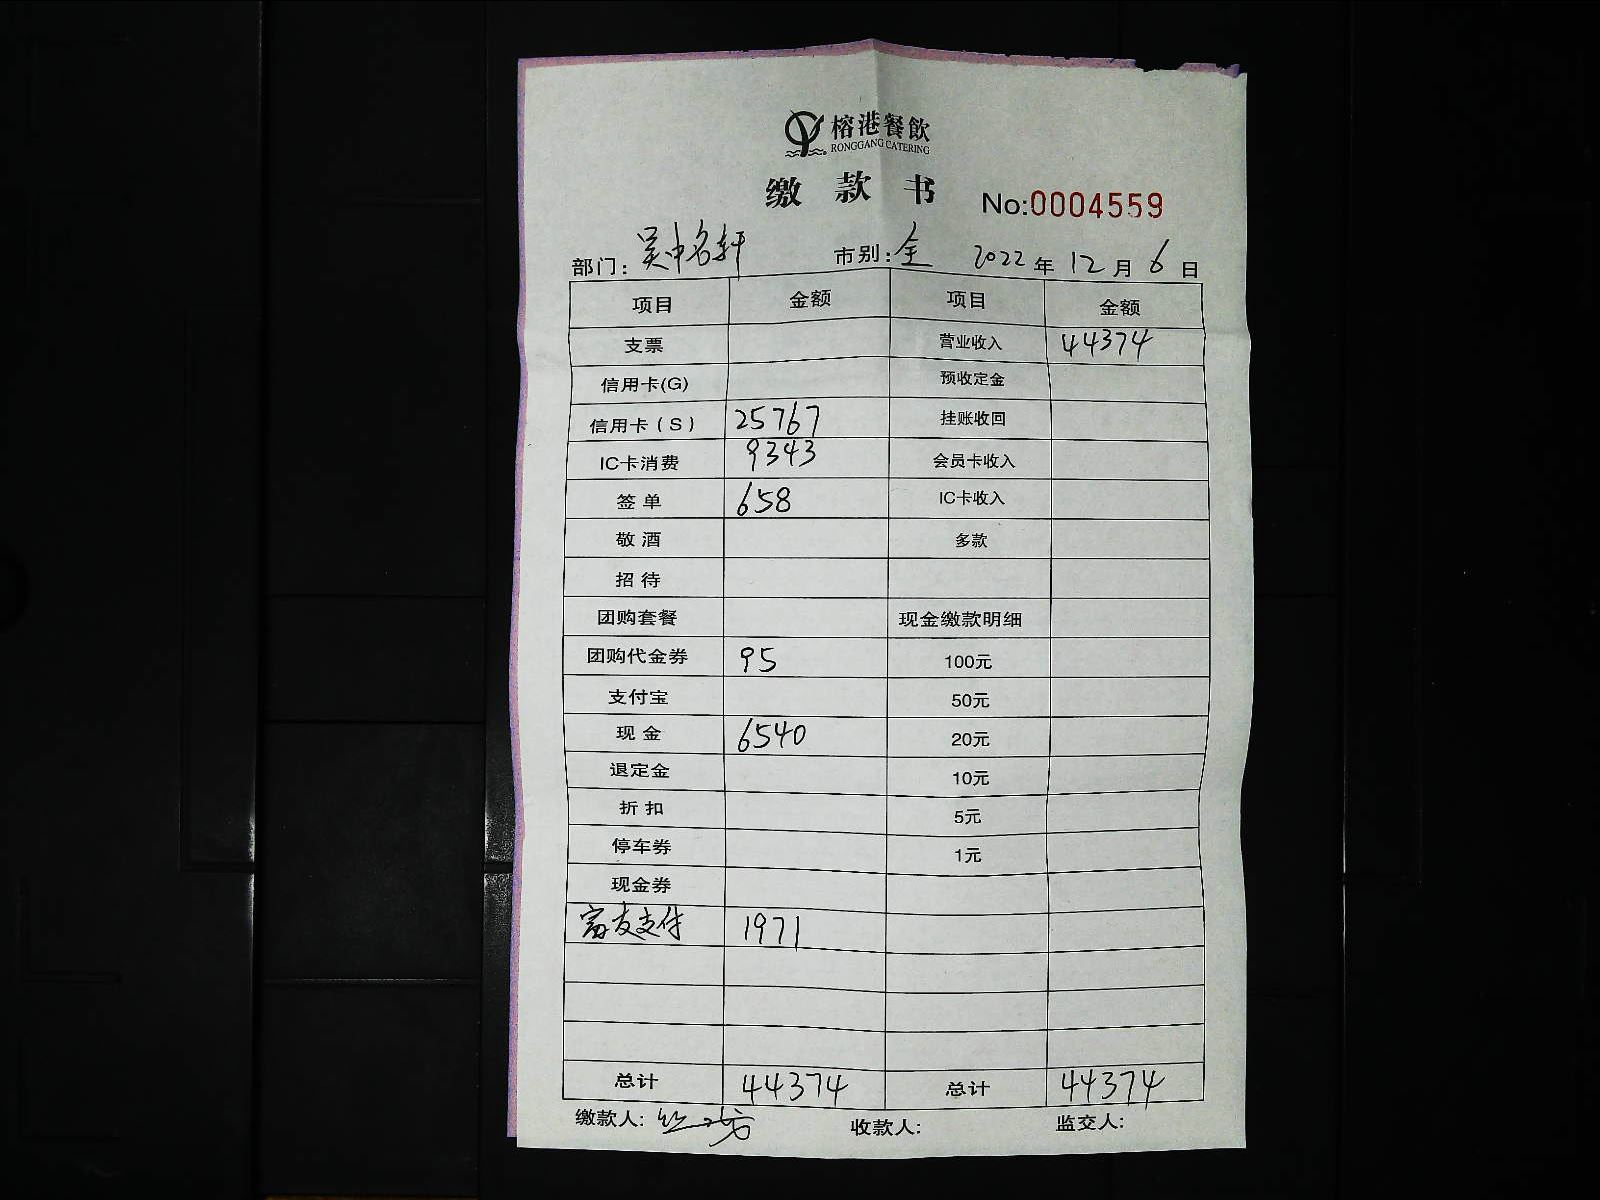 榕港餐飲
RONGGANG CATERING
缴款书 No:0004559
部门：吴中名轩 市别：全 2022年12月6日
项目 金额 项目 金额
支票 营业收入 44374
信用卡(G) 预收定金
信用卡(S) 25767 挂账收回
IC卡消费 9343 会员卡收入
签单 658 IC卡收入
敬酒 多款
招待
团购套餐 现金缴款明细
团购代金券 95 100元
支付宝 50元
现金 6540 20元
退定金 10元
折扣 5元
停车券 1元
现金券
富友支付 1971
总计 44374 总计 44374
缴款人: 收款人: 监交人: